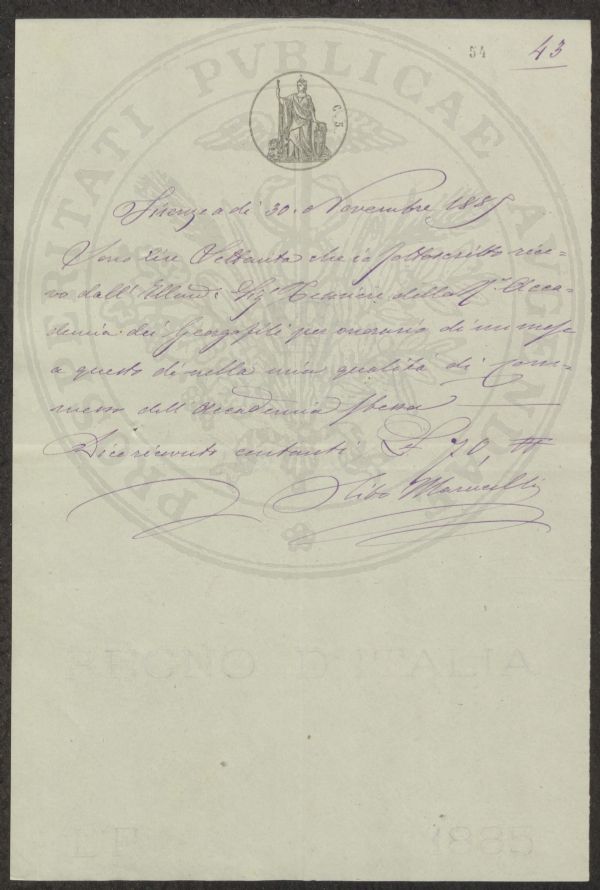 54
43
PROSPERITATI PVBLICAE AVGENDAE
C. 5.
Firenze a dì 30. Novembre 1885
Sono Lire Settanta che io sottoscritto rice-
vo dall' Illmo: Sig.r Tesoriere della R.le Acca-
demia dei Georgofili per onorario di un mese
a questo dì nella mia qualità di Com-
messo dell' Accademia stessa
Dico ricevuto contanti £ 70,
Marucelli
REGNO D'ITALIA
1885